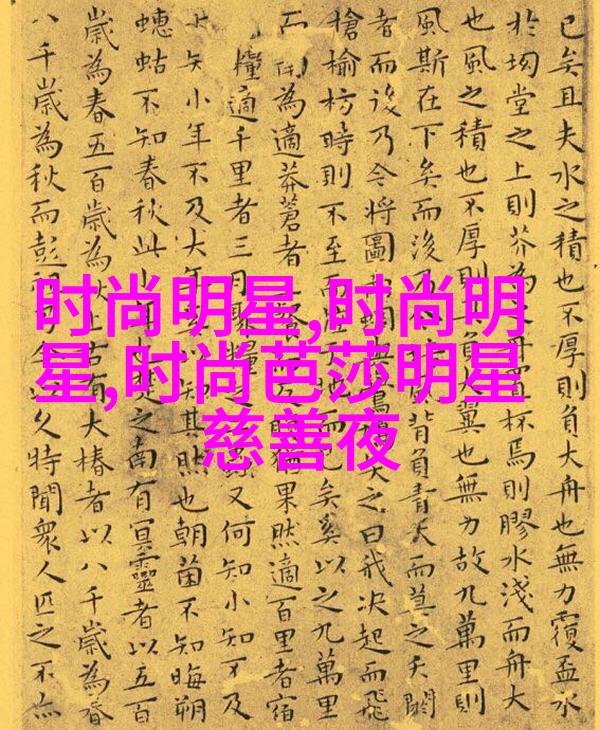 已矣且夫水之積也不厚則負大舟也無力覆盃水
於坳堂之上則芥為舟置杯焉則膠水淺而舟大
也風之積也不厚則負翼也無力故九萬里則
風斯在下矣而後背負青天而莫之夭閼
者而後乃今將圖蜩鳩笑之曰我決起而飛
槍榆枋時則不至而地而已矣奚以之九萬里
而為適莽蒼者飡而反腹猶果然適百里者宿
糧適千里者三月聚糧之又何知小知不及
大知小年不及大年奚以知其然也朝菌不知晦朔
蟪蛄不知春秋此小年也楚之南有冥靈者以五百
歲為春五百歲為秋上古有大椿者以八千歲為春
八千歲為秋而彭祖今以久特聞衆人匹之不亦
时尚明星,时尚明
星,时尚芭莎明星
慈善夜